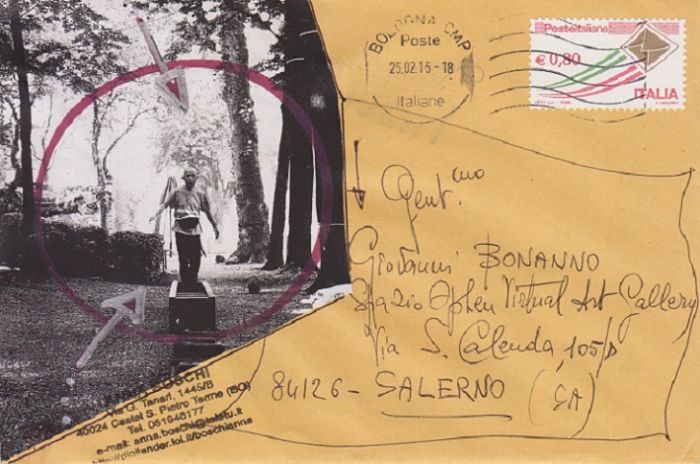 BOLOGNA CMP
Poste
25.02.15-18
Italiane
Posteitaliane
€ 0,80
ITALIA
Gent.mo
Giovanni BONANNO
Spazio Ophen Virtual Art Gallery
Via S. Calenda, 105/D
84126 - SALERNO (SA)
BOSCHI
Via G. Tanari, 1445/B
40024 Castel S. Pietro Terme (BO)
Tel. 051948177
e-mail: